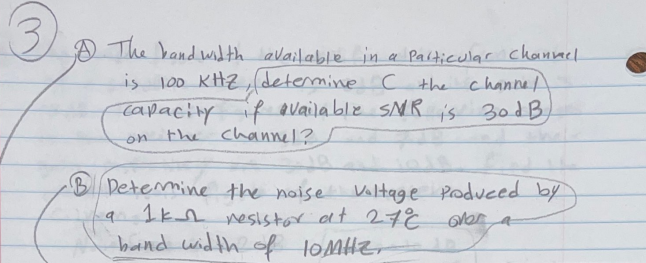 3
A The bandwidth available in a particular channel
is 100 KHZ, determine C the channel
capacity if available SNR is 30dB
on the channel?
B Determine the noise voltage produced by
a 1kΩ resistor at 27°C over a
band width of 10MHz.